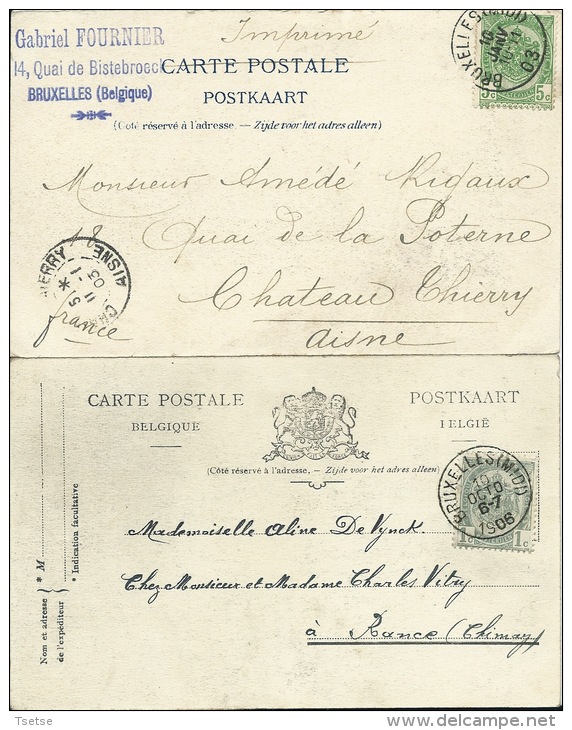 Gabriel FOURNIER
14, Quai de Bistebroeck
BRUXELLES (Belgique)
Imprimé
CARTE POSTALE
POSTKAART
(Côté réservé à l'adresse. — Zijde voor het adres alleen)
BRUXELLES (MIDI)
10
JANV
03
5c 5c
Monsieur Amédé Rigaux
18 Quai de la Poterne
Chateau Thierry
Aisne
france
THIERRY
AISNE
11
1
03
CARTE POSTALE
BELGIQUE
POSTKAART
IELGIË
(Côté réservé à l'adresse. — Zijde voor het adres alleen)
BRUXELLES (MIDI)
10
OCTO
6-7
1906
1c 1c
Mademoiselle Aline De Vynck.
Chez Monsieur et Madame Charles Vitry
à Rance (Chimay)
Nom et adresse
de l'expéditeur
* M
* Indication facultative
Tsetse
delcampe.net